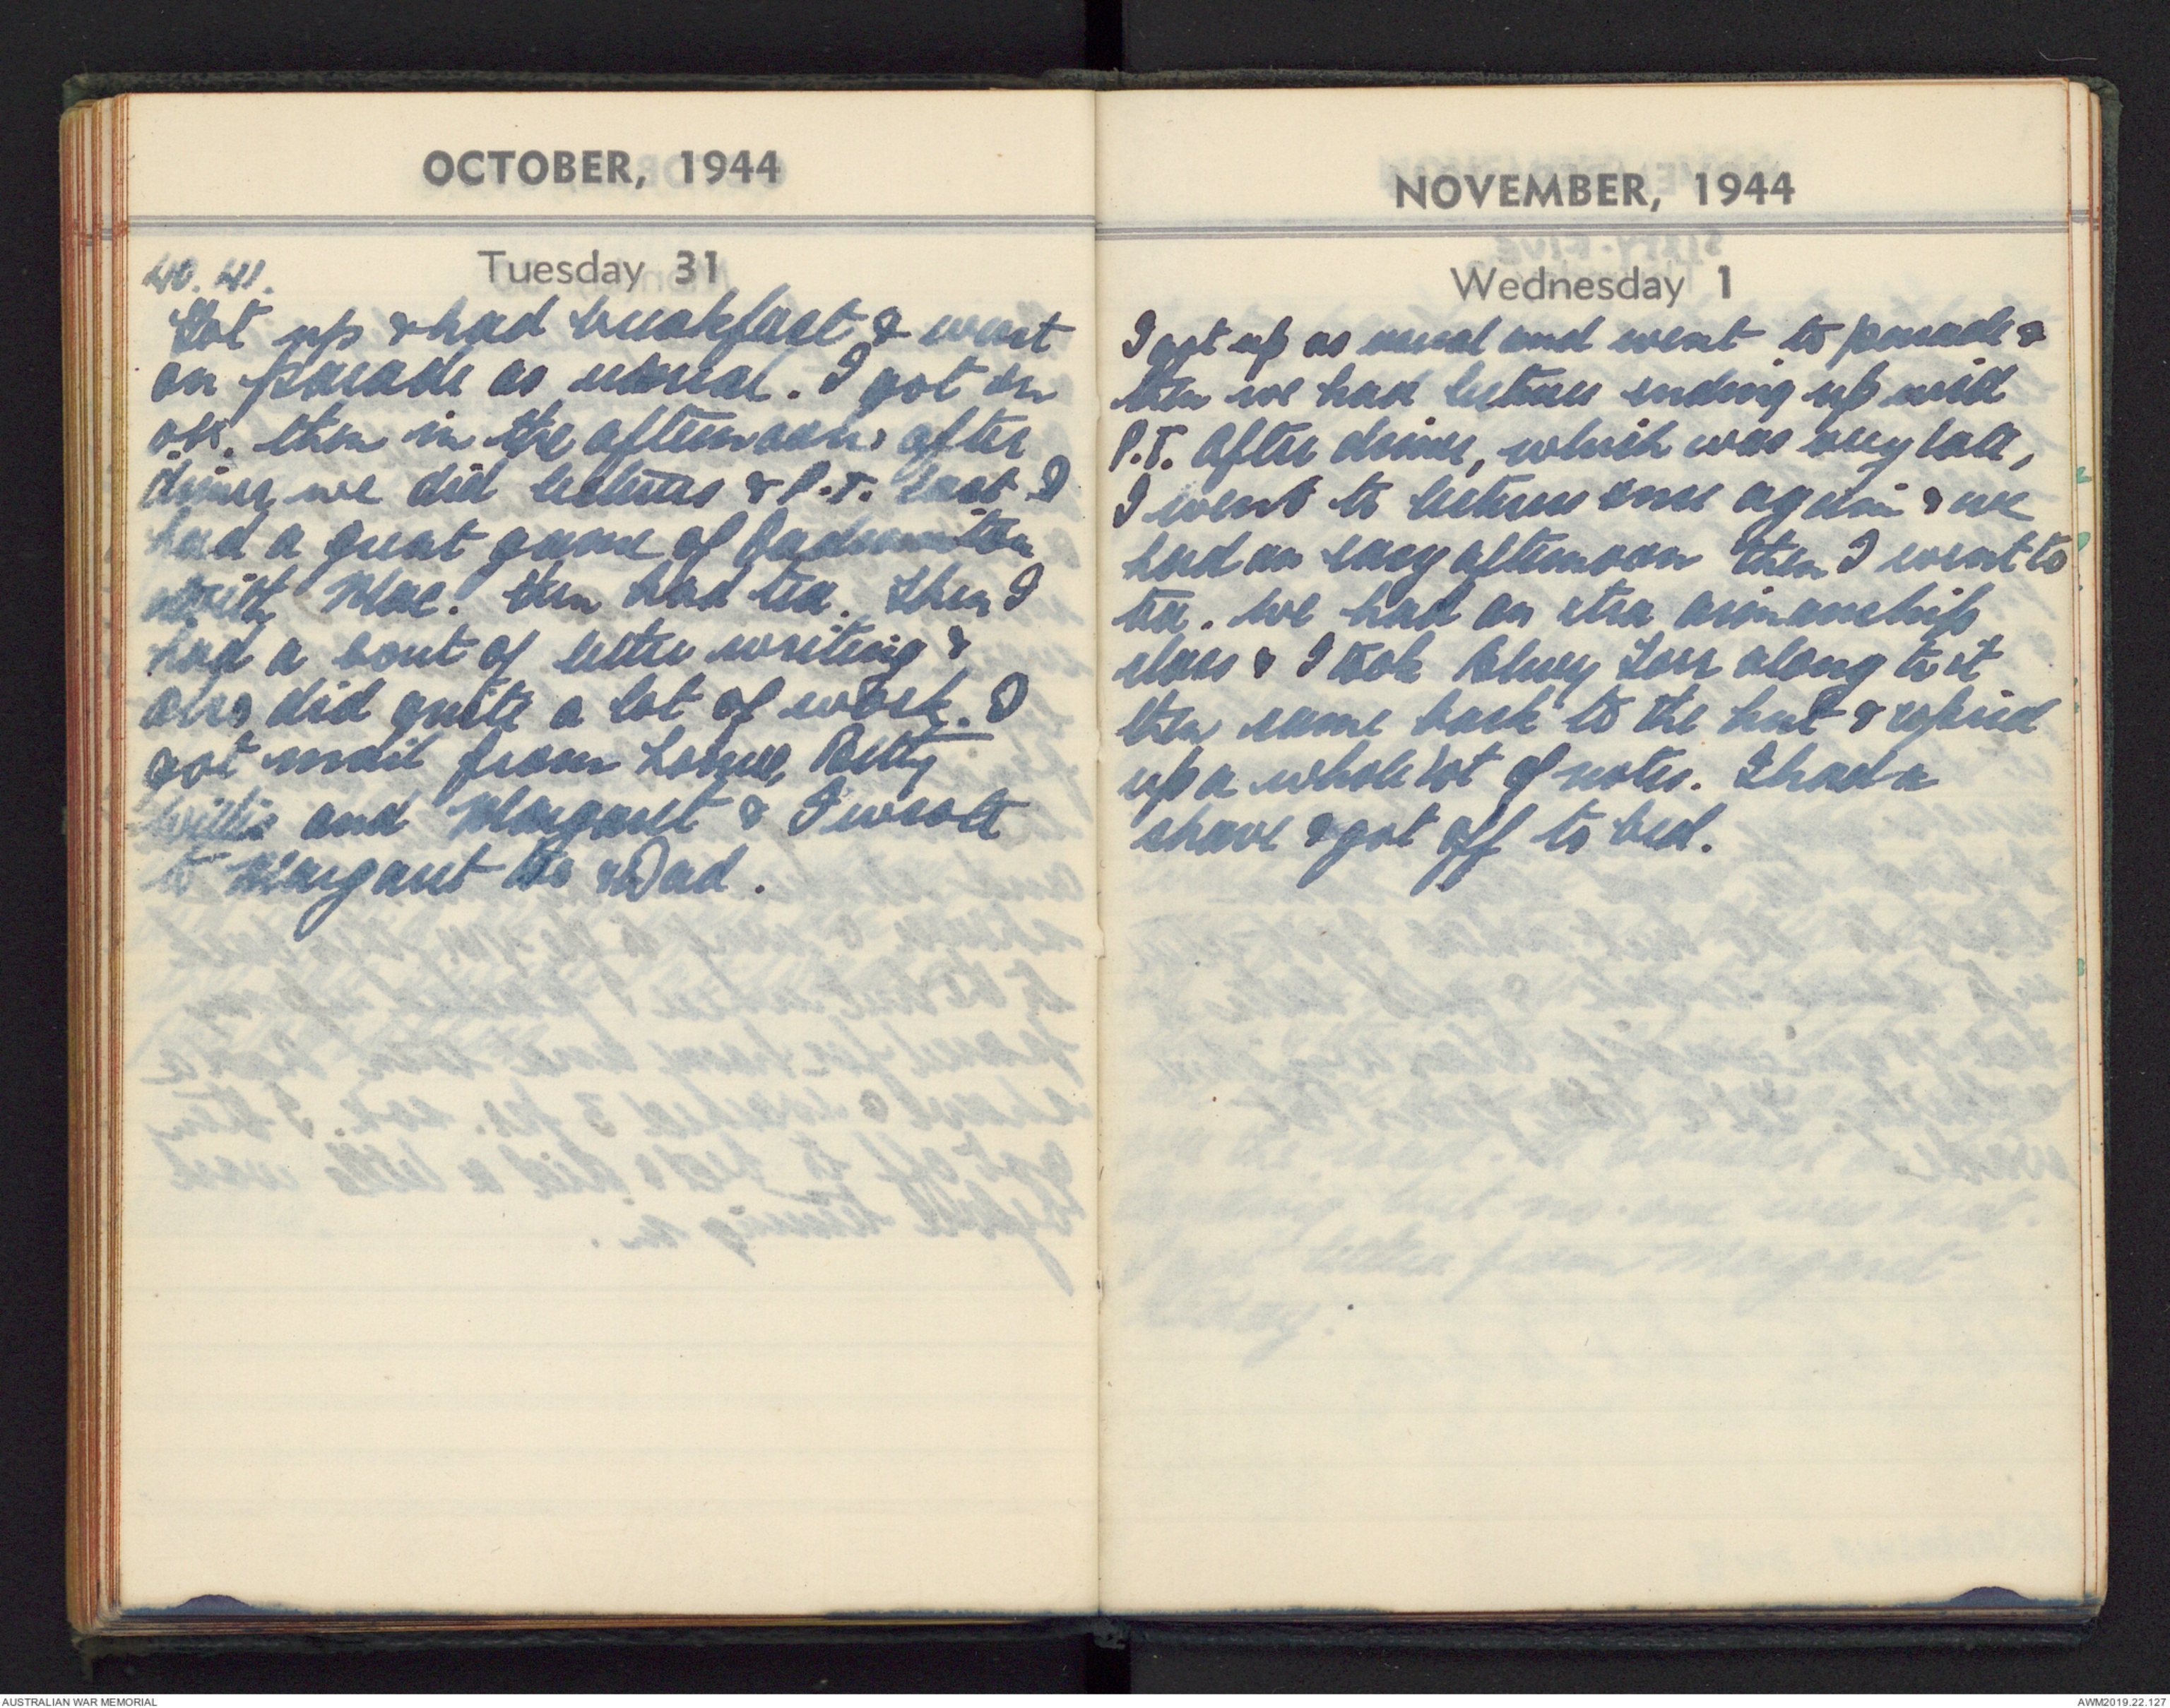 OCTOBER, 1944
Tuesday 31
40. 41.
Got up & had breakfast & went
on parade as usual. I got on
ok. then in the afternoon after
dinner we did lectures & P.T. last I
had a great game of Badminton
with Mac. then had tea. Then I
had a bout of letter writing &
also did quite a lot of work. I
got mail from home, Betty
Willis and Margaret & I wrote
to Margaret & Dad.
NOVEMBER, 1944
Wednesday 1
I got up as usual and went to parade &
then we had lectures ending up with
P.T. After dinner, which was very late,
I went to lectures once again & we
had an easy afternoon then I went to
tea. We had an xtra airmanship
class & I took Bluey along to it
then came back to the hut & copied
up a whole lot of notes. I had a
shave & got off to bed.
AUSTRALIAN WAR MEMORIAL
AWM2019.22.127